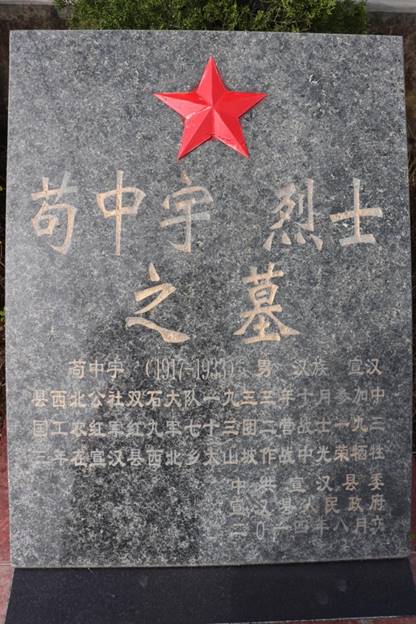 苟中宇 烈士
之墓
苟中宇 (1917-1933) 男 汉族 宣汉
县西北公社双石大队一九三三年十月参加中
国工农红军红九军七十三团二营战士一九三
三年在宣汉县西北乡大山坡作战中光荣牺牲
中共宣汉县委
宣汉县人民政府
二0一四年八月立